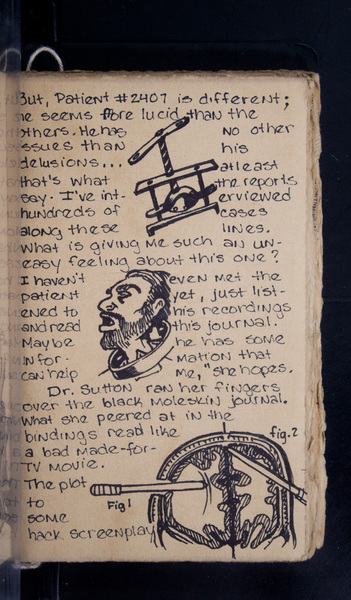 But, Patient #2407 is different;
he seems more lucid than the
others. He has no other
issues than his
delusions... atleast
that's what the reports
say. I've int- erviewed
hundreds of cases
along these lines.
What is giving me such an un-
easy feeling about this one?
I haven't even met the
patient yet, just list-
ened to his recordings
and read this journal.
Maybe he has some
infor- mation that
can help me," she hopes.
Dr. Sutton ran her fingers
over the black Moleskin journal.
What she peered at in the
bindings read like
a bad made-for-
TV movie.
fig. 2
The plot
Fig 1
to
some
hack screenplay